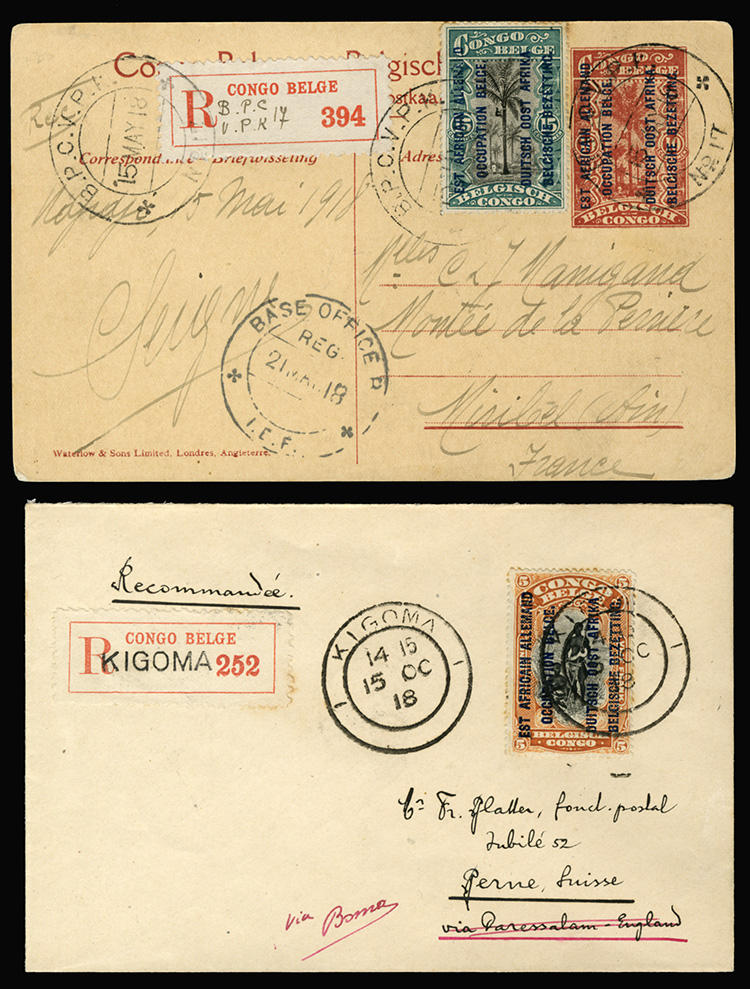 CONGO BELGE
B.P.C 17
V.P.K
R 394
B.P.C.V.P.K.
15 MAY 18
No 17
CONGO BELGE
5
EST AFRICAIN ALLEMAND
OCCUPATION BELGE.
DUITSCH OOST AFRIKA
BELGISCHE BEZETTING.
BELGISCH CONGO
EST AFRICAIN ALLEMAND
OCCUPATION BELGE.
DUITSCH OOST AFRIKA
BELGISCHE BEZETTING.
BELGISCH CONGO
No 17
5 Mai 1918
Montée de la
Miribel (Ain)
France
BASE OFFICE B
REG.
21 MA 18
I.E.F.
Waterlow & Sons Limited, Londres, Angleterre.
Recommandée.
CONGO BELGE
R KIGOMA 252
KIGOMA
14 15
15 OC
18
5 CONGO BELGE 5
EST AFRICAIN ALLEMAND
OCCUPATION BELGE.
DUITSCH OOST AFRIKA
BELGISCHE BEZETTING.
5 BELGISCH CONGO 5
Fr. Platter, fonct. postal
Jubilé 52
Berne, Suisse
via Daressalam-England
via Boma